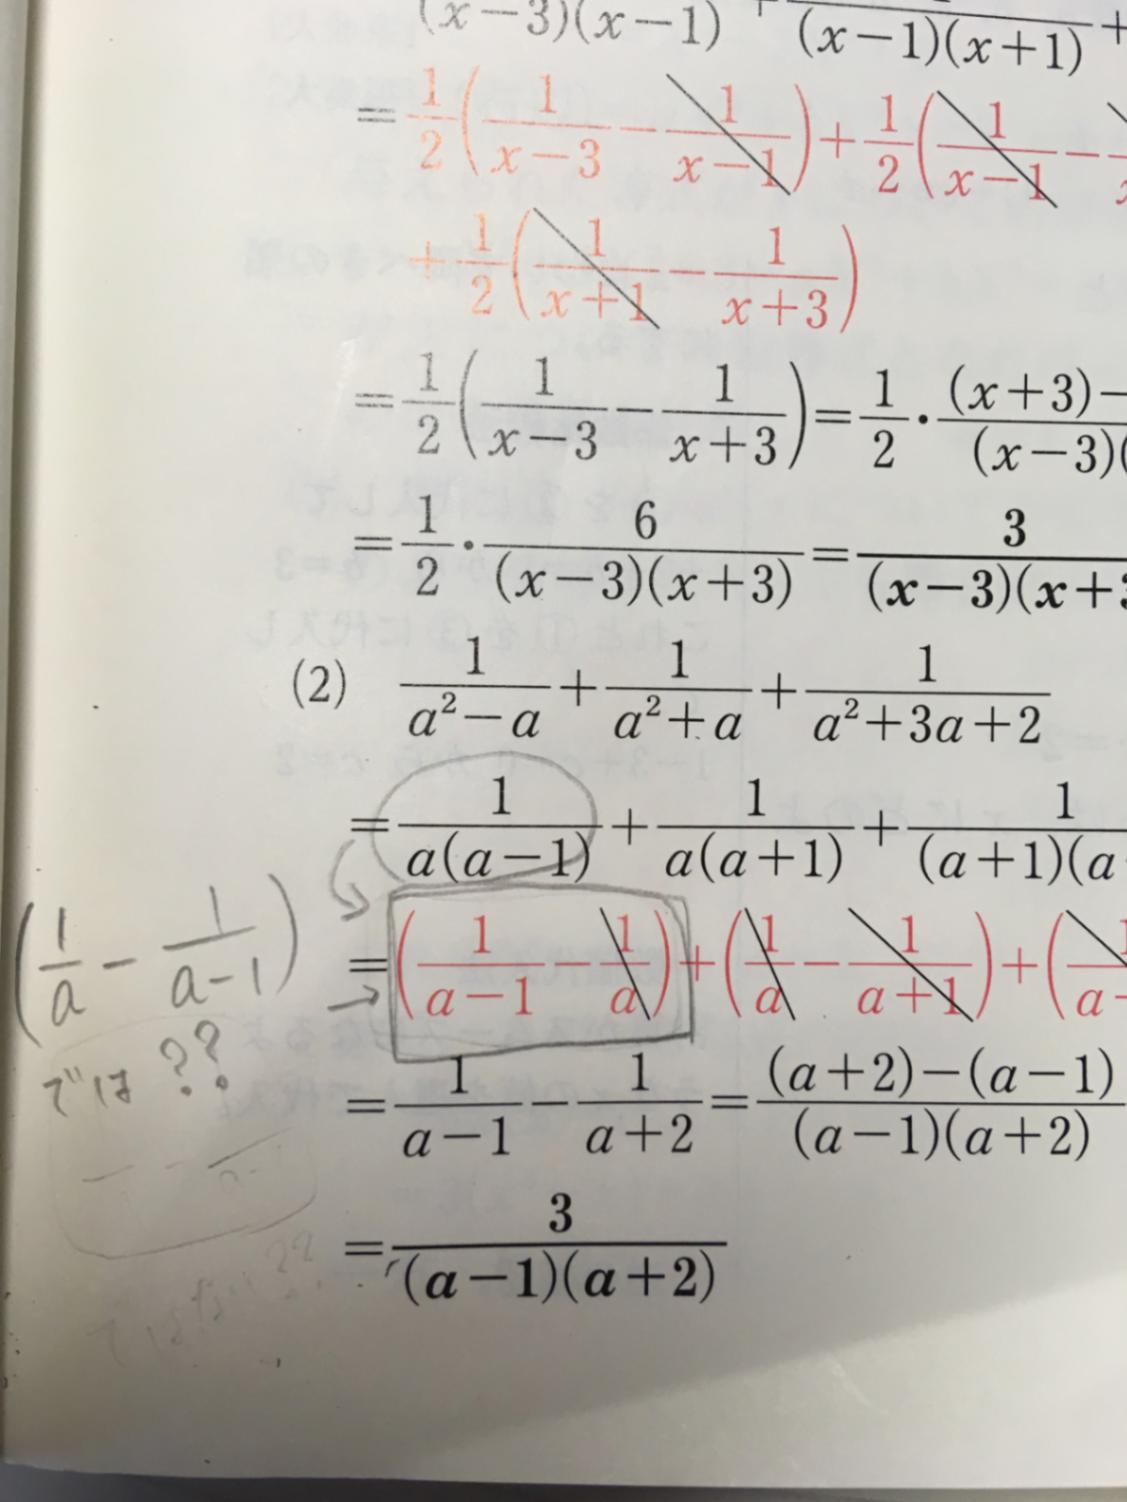 (x−3)(x−1) + (x−1)(x+1) +
= 1/2 ( 1/(x−3) − 1/(x−1) ) + 1/2 ( 1/(x−1) −
+ 1/2 ( 1/(x+1) − 1/(x+3) )
= 1/2 ( 1/(x−3) − 1/(x+3) ) = 1/2 · (x+3)− / (x−3)(
= 1/2 · 6/((x−3)(x+3)) = 3/((x−3)(x+3
(2) 1/(a²−a) + 1/(a²+a) + 1/(a²+3a+2)
= 1/(a(a−1)) + 1/(a(a+1)) + 1/((a+1)(a
= ( 1/(a−1) − 1/a ) + ( 1/a − 1/(a+1) ) + ( 1/(a
= 1/(a−1) − 1/(a+2) = ((a+2)−(a−1))/((a−1)(a+2))
= 3/((a−1)(a+2))
( 1/a − 1/(a−1) )
では ??